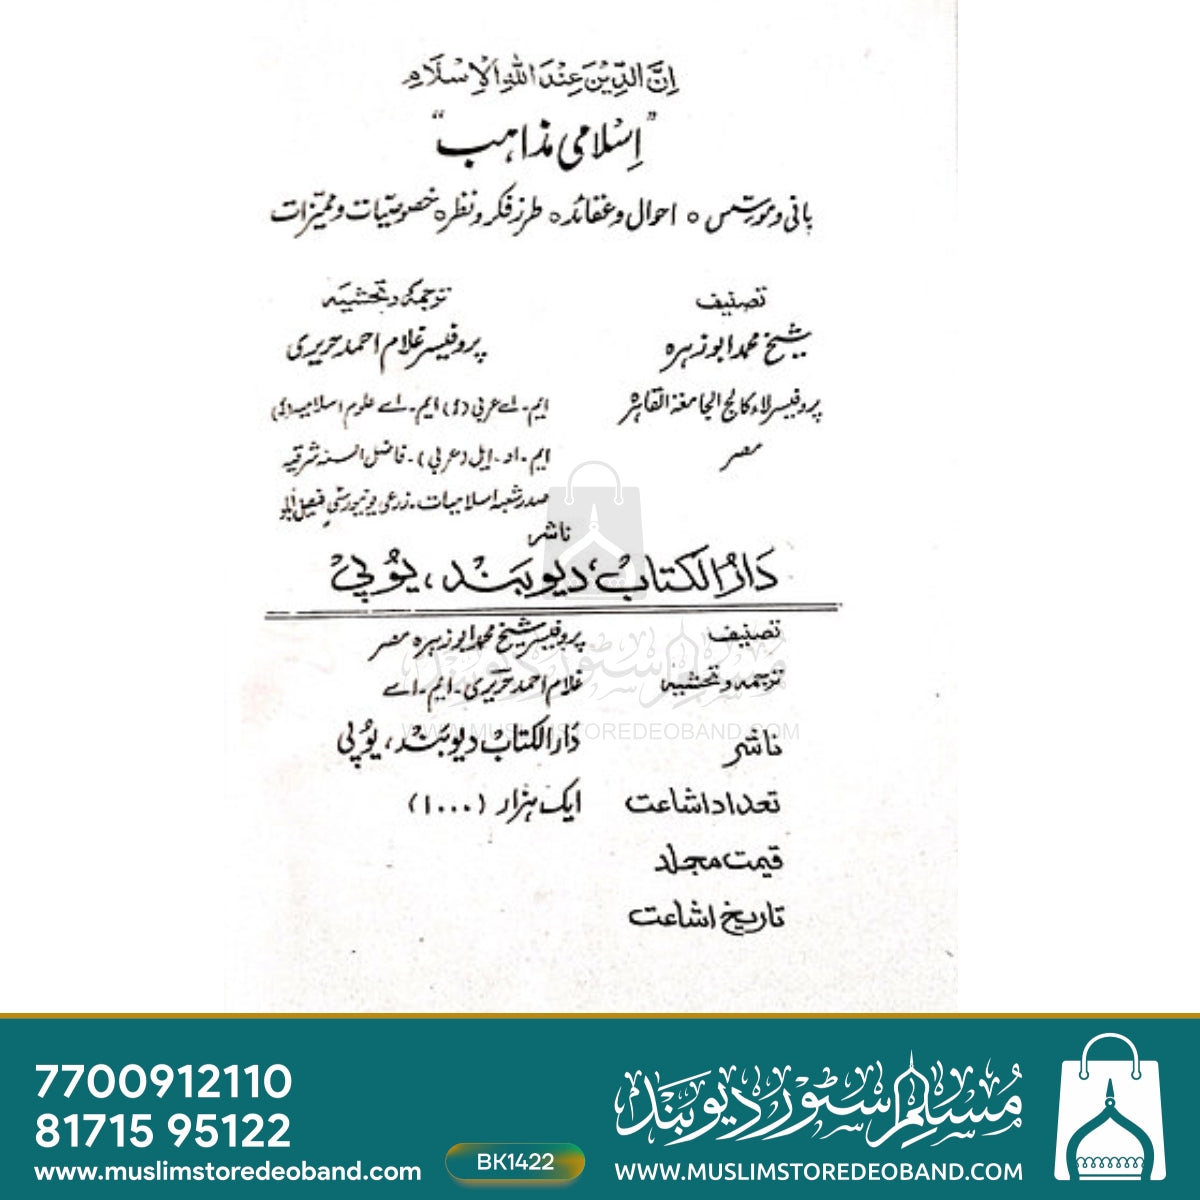 اِنَّ الدِّيْنَ عِنْدَ اللّٰهِ الْاِسْلَام
"اِسلامی مذاہب"
بانی و مؤسّس ○ احوال و عقائد ○ طرز فکر و نظر ○ خصوصیّات و ممیّزات
تصنیف
شیخ محمد ابو زہرہ
پروفیسر لاء کالج الجامعۃ القاہرہ
مصر
ترجمہ و تحشیہ
پروفیسر غلام احمد حریری
ایم۔اے عربی (۱) ایم۔اے علوم اسلامیہ (۱)
ایم۔او۔ایل (عربی)۔فاضل السنہ شرقیہ
صدر شعبہ اسلامیات۔زرعی یونیورسٹی فیصل آباد
ناشر
دَارُ الکتاب، دیوبَند، یُوپی
تصنیف پروفیسر شیخ محمد ابو زہرہ مصر
ترجمہ و تحشیہ غلام احمد حریری۔ایم۔اے
ناشر دَار الکتاب دیوبَند، یُوپی
تعداد اشاعت ایک ہزار (۱۰۰۰)
قیمت مجلد
تاریخ اشاعت
مسلم سٹور دیوبند
WWW.MUSLIMSTOREDEOBAND.COM
7700912110
81715 95122
www.muslimstoredeoband.com
BK1422
مسلم سٹور دیوبند
WWW.MUSLIMSTOREDEOBAND.COM